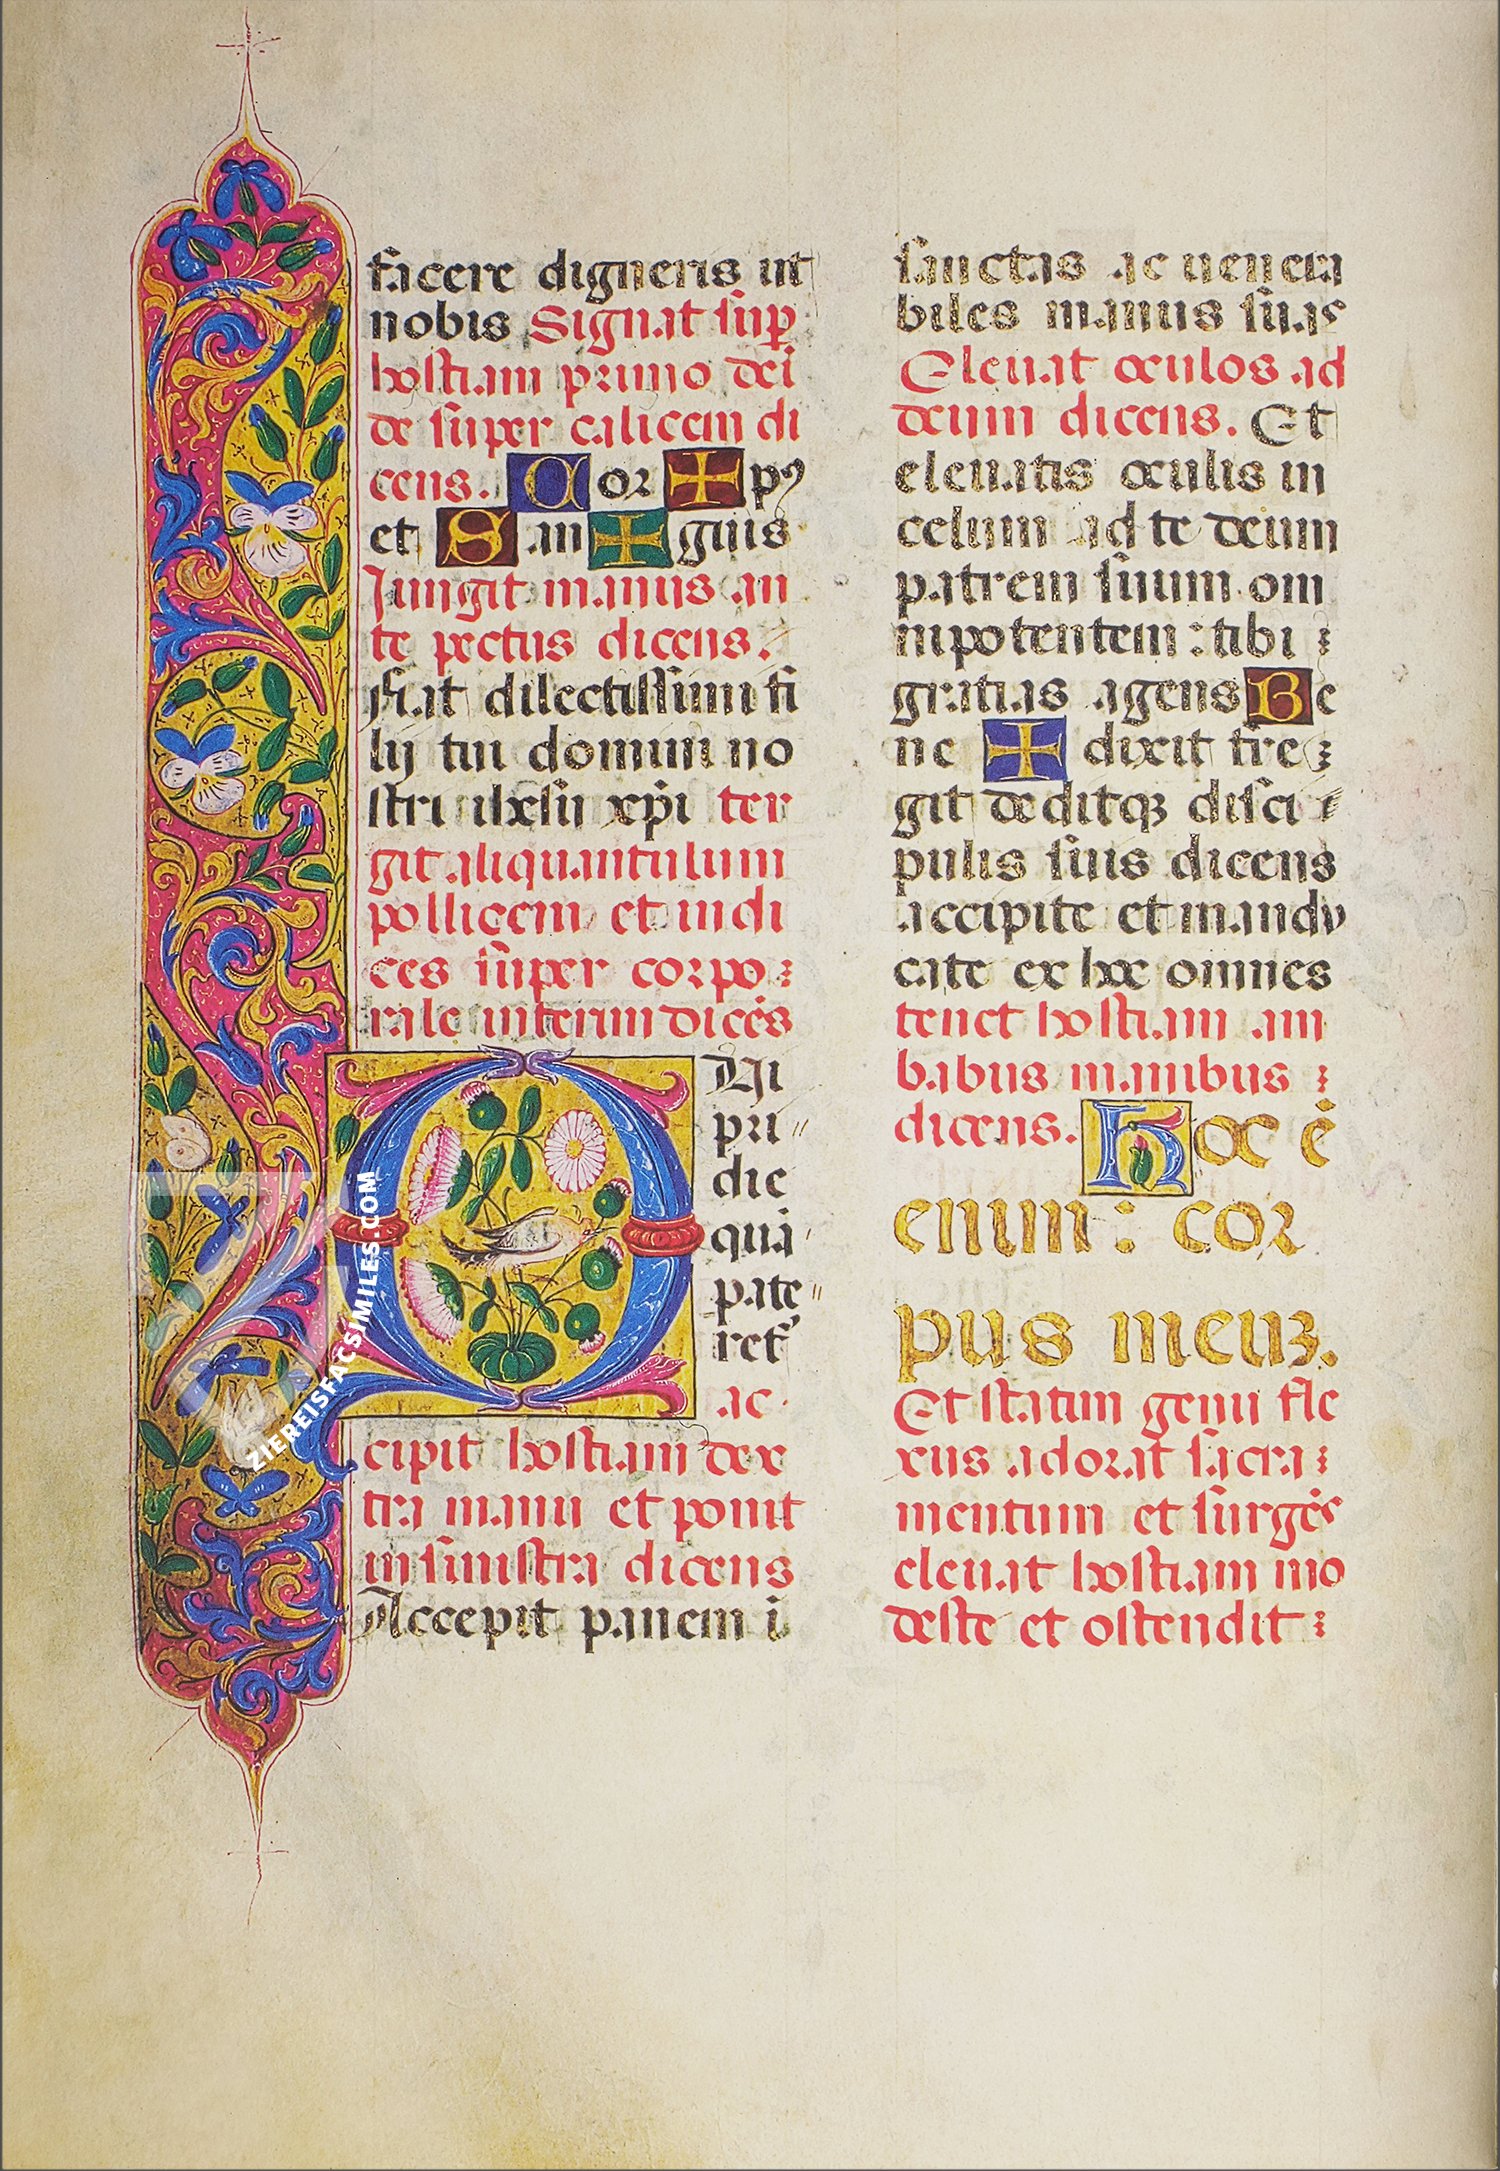 facere digneris ut
nobis Signat sup̲
hostiam primo dei
de super calicem di
cens. Cor + pꝰ
et San + guis
Jungit manus an
te pectus dicens.
Fiat dilectissimi fi
lij tui domini no
stri ihesu xp̄i ter
git aliquantulum
pollicem et indi
ces super corpo:
rale interim dicēs
QUi
pri
die
quā
pate
ret᾽
ac
cipit hostiam dex
tra manu et ponit
in sinistra dicens
Accepit panem i
sanctas ac venera
biles manus suas
Eleuat oculos ad
deum dicens. Et
eleuatis oculis in
celum ad te deum
patrem suum om
nipotentem : tibi :
gratias agens Be
ne + dixit fre:
git deditqꝫ disci
pulis suis dicens
accipite et mandu
cate ex hoc omnes
tenet hostiam am
babus manibus :
dicens. Hoc ē
enim : cor
pus meuꝫ.
Et statim genu fle
xus adorat sacra:
mentum et surgēs
eleuat hostiam mo
deste et ostendit :
ZIEREISFACSIMILES.COM